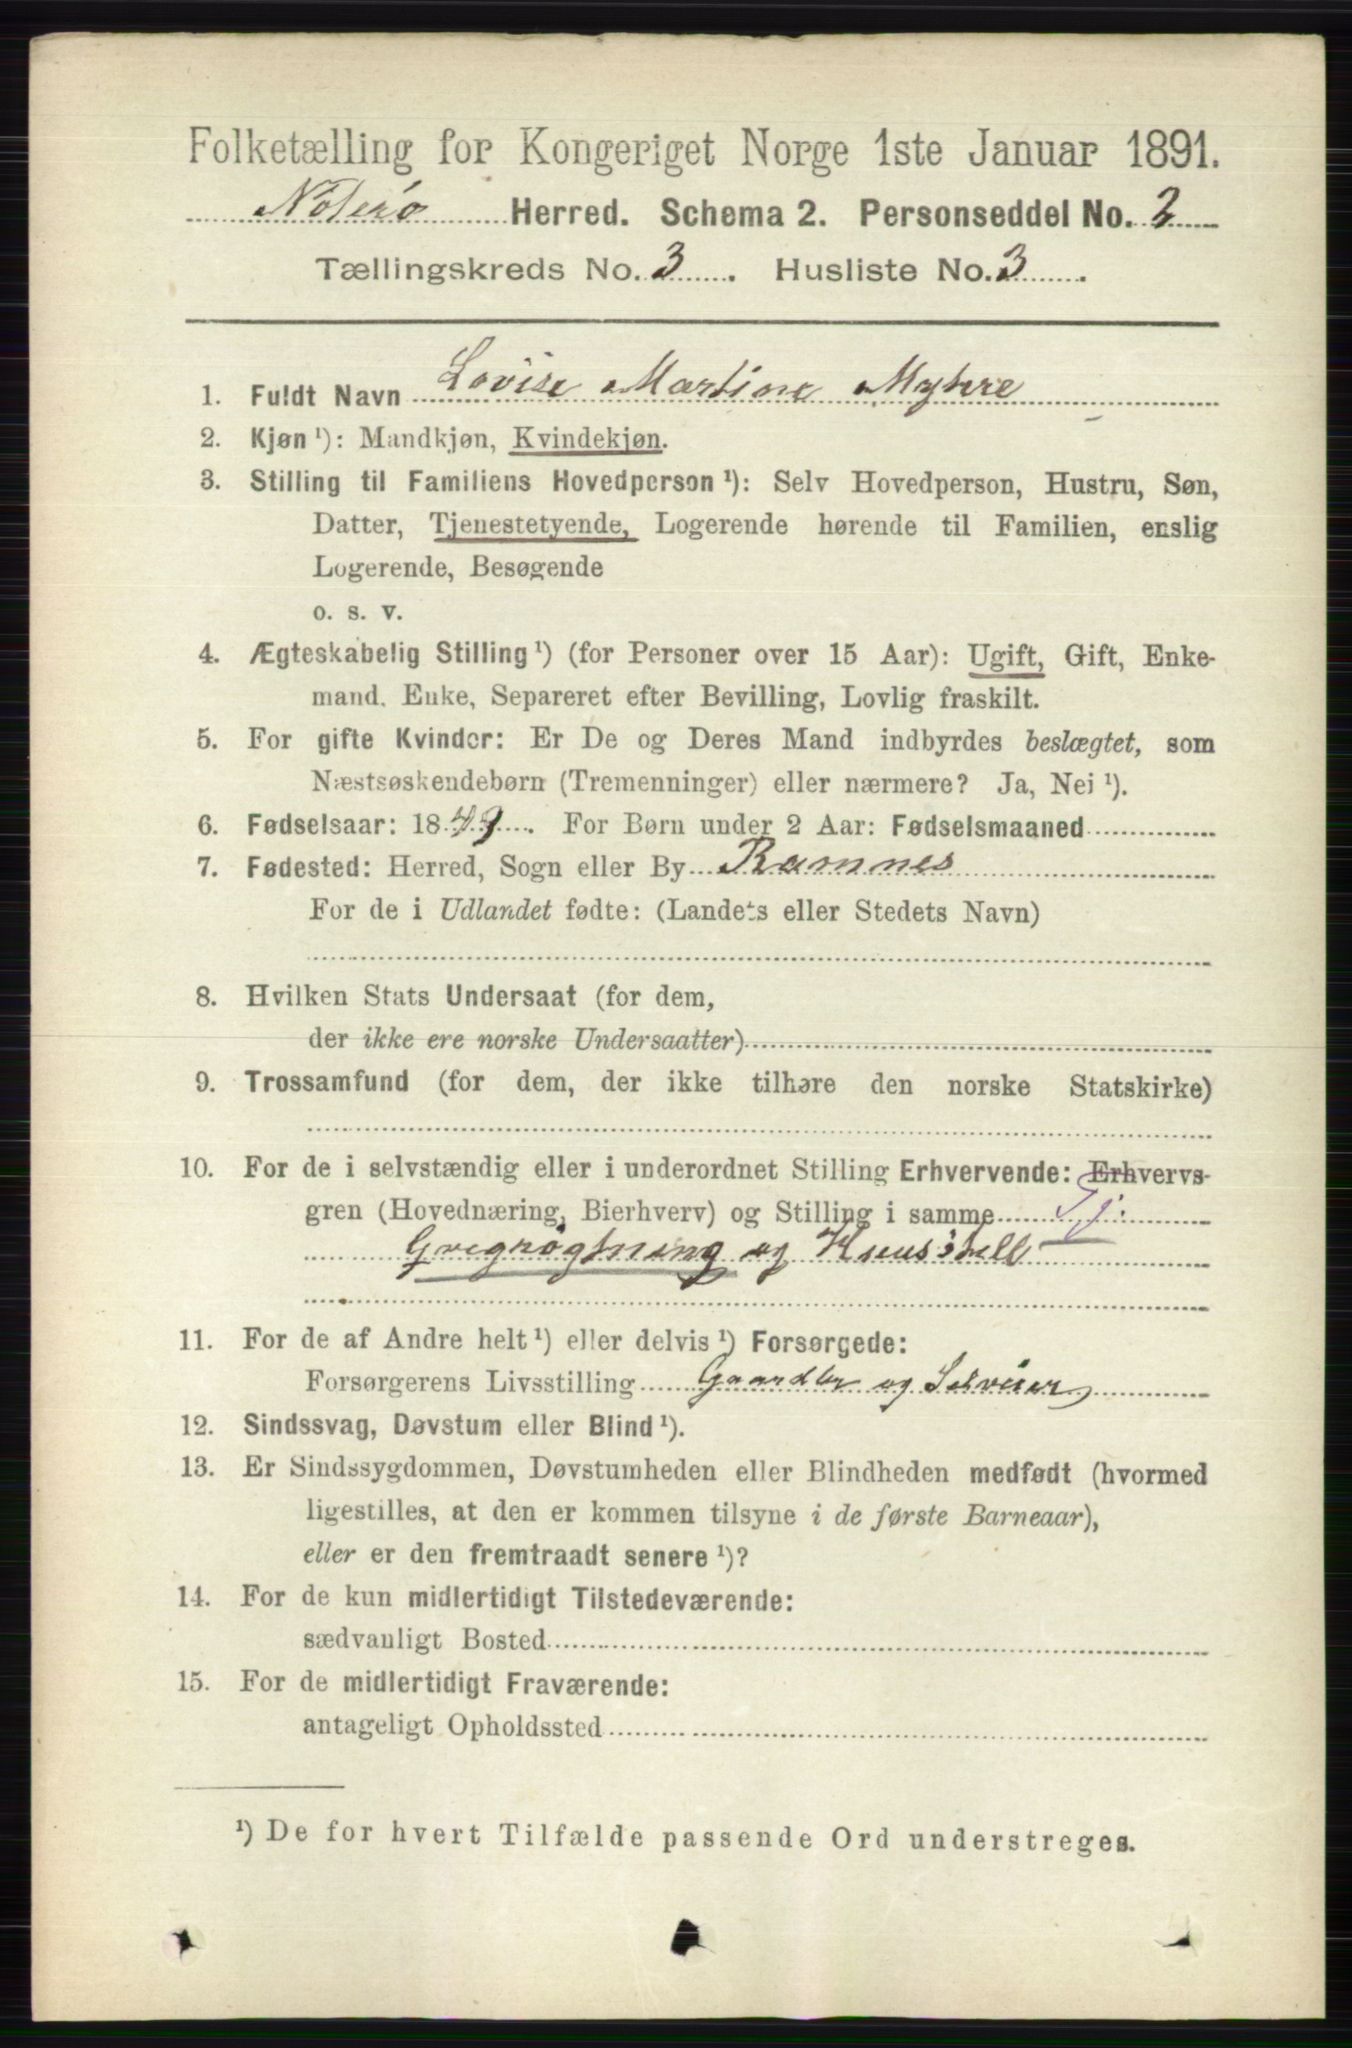 Folketælling for Kongeriget Norge 1ste Januar 1891.
Nøterø Herred. Schema 2. Personseddel No. 2
Tællingskreds No. 3. Husliste No. 3.
1. Fuldt Navn Lovise Martine Myhre
2. Kjøn ¹): Mandkjøn, Kvindekjøn.
3. Stilling til Familiens Hovedperson ¹): Selv Hovedperson, Hustru, Søn,
Datter, Tjenestetyende, Logerende hørende til Familien, enslig
Logerende, Besøgende
o. s. v.
4. Ægteskabelig Stilling ¹) (for Personer over 15 Aar): Ugift, Gift, Enke-
mand, Enke, Separeret efter Bevilling, Lovlig fraskilt.
5. For gifte Kvinder: Er De og Deres Mand indbyrdes beslægtet, som
Næstsøskendebørn (Tremenninger) eller nærmere? Ja, Nei ¹).
6. Fødselsaar: 1849. For Børn under 2 Aar: Fødselsmaaned
7. Fødested: Herred, Sogn eller By Ramnes
For de i Udlandet fødte: (Landets eller Stedets Navn)
8. Hvilken Stats Undersaat (for dem,
der ikke ere norske Undersaatter)
9. Trossamfund (for dem, der ikke tilhøre den norske Statskirke)
10. For de i selvstændig eller i underordnet Stilling Erhvervende: Erhvervs-
gren (Hovednæring, Bierhverv) og Stilling i samme Tj.
og Huusstell
11. For de af Andre helt ¹) eller delvis ¹) Forsørgede:
Forsørgerens Livsstilling Gaardbr og
12. Sindssvag, Døvstum eller Blind ¹).
13. Er Sindssygdommen, Døvstumheden eller Blindheden medfødt (hvormed
ligestilles, at den er kommen tilsyne i de første Barneaar),
eller er den fremtraadt senere ¹)?
14. For de kun midlertidigt Tilstedeværende:
sædvanligt Bosted
15. For de midlertidigt Fraværende:
antageligt Opholdssted
¹) De for hvert Tilfælde passende Ord understreges.